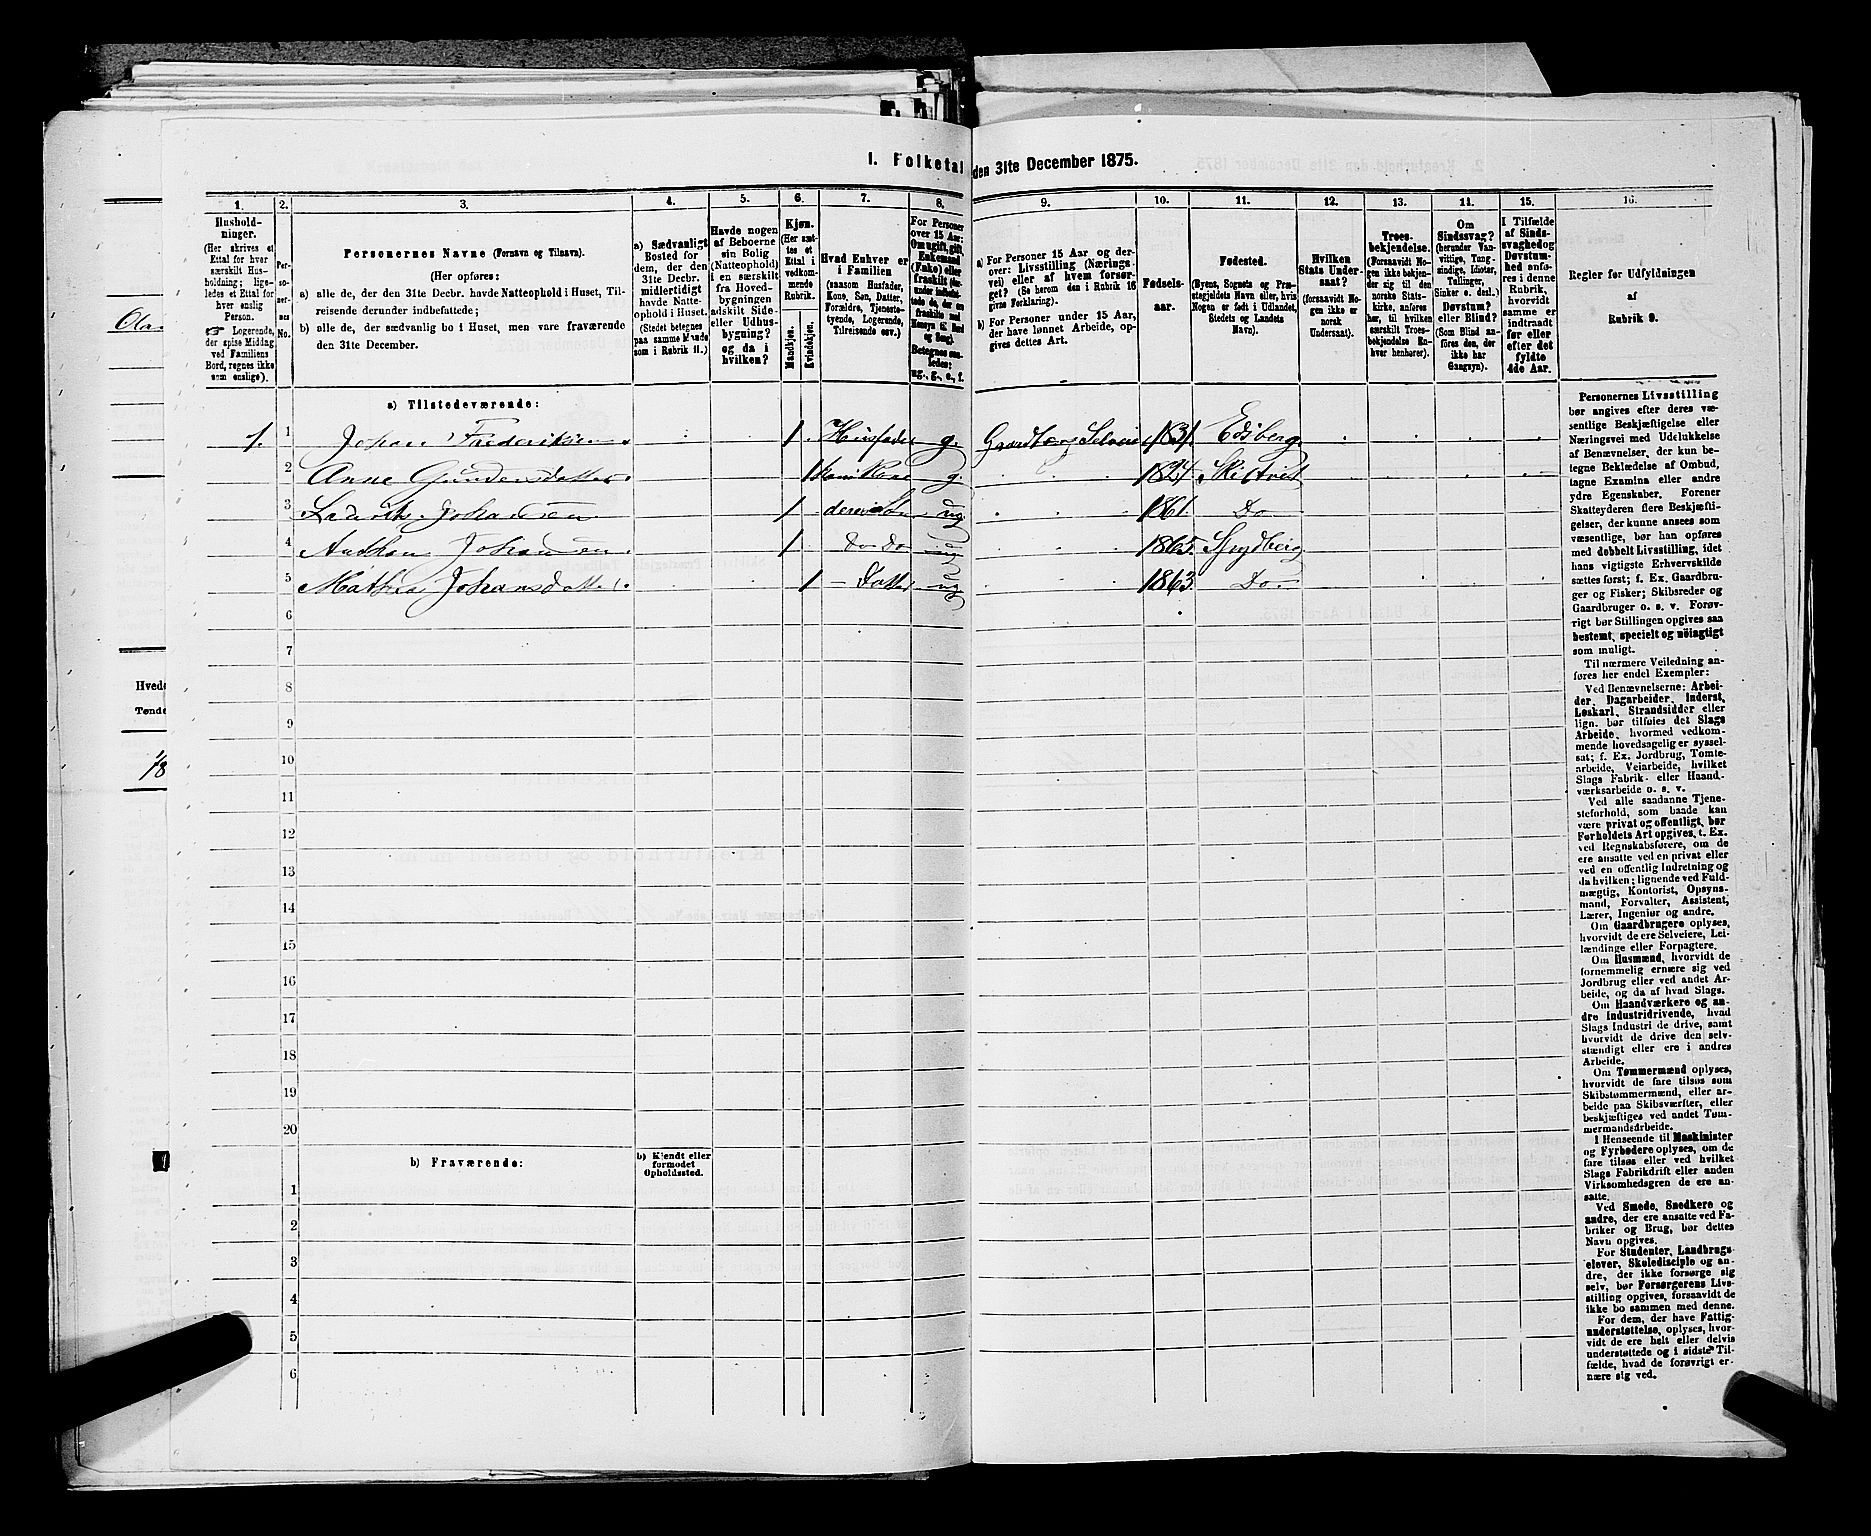 1. Folketal den 31te December 1875.
1.
Hushold-
ninger.
(Her skrives et
Ettal for hver
særskilt Hus-
holdning; lige-
ledes et Ettal for
hver enslig
Person.
Logerende,
der spise Middag
ved Familiens
Bord, regnes ikke
som enslige).
2.
Per-
so-
ner-
nes
No.
3.
Personernes Navne (Fornavn og Tilnavn).
(Her opføres:
a) alle de, der den 31te Decbr. havde Natteophold i Huset, Til-
reisende derunder indbefattede;
b) alle de, der sædvanlig bo i Huset, men vare fraværende
den 31te December.
4.
a) Sædvanligt
Bosted for
dem, der den
31te Decbr.
midlertidigt
havde Natte-
ophold i Huset.
(Stedet betegnes
paa samme Maade
som i Rubrik 11.)
5.
Havde nogen
af Beboerne
sin Bolig
(Natteophold)
i en særskilt
fra Hoved-
bygningen
adskilt Side-
eller Udhus-
bygning?
og da i
hvilken?
6.
Kjøn.
(Her sæt-
tes et
Ettal i
vedkom-
mende
Rubrik.
Mandkjøn.
Kvindekjøn.
7.
Hvad Enhver er
i Familien
(saasom Husfader,
Kone, Søn, Datter,
Forældre, Tjeneste-
tyende, Logerende,
Tilreisende osv.)
8.
For Personer
over 15 Aar:
Om ugift, gift,
Enkemand
(Enke) eller
fraskilt
Betegnes saa-
ledes:
ug., g., e., f.
9.
a) For Personer 15 Aar og der-
over: Livsstilling (Nærings-
vei) eller af hvem forsør-
get? (Se herom den i Rubrik 16
givne Forklaring).
b) For Personer under 15 Aar,
der have lønnet Arbeide, op-
gives dettes Art.
10.
Fødsels-
aar.
11.
Fødested.
(Byens, Sognets og Præ-
stegjeldets Navn eller, hvis
Nogen er født i Udlandet,
Stedets og Landets
Navn).
12.
Hvilken
Stats Under-
saat?
(forsaavidt No-
gen ikke er
norsk
Undersaat).
13.
Troes-
bekjendelse.
(Forsaavidt No-
gen ikke bekjen-
der sig til den
norske Stats-
kirke, anføres
her, til hvilken
særskilt Troes-
bekjendelse En-
hver henhører).
14.
Om
Sindssvag?
(herunder Van-
vittige, Tung-
sindige, Idioter,
Tullinger,
Sinker o. desl.)
Døvstum?
eller Blind?
(Som Blind an-
føres den, der
ikke har
Gangsyn).
15.
I Tilfælde
af Sinds-
svaghed og
Døvstum-
hed anfø-
res i denne
Rubrik,
hvorvidt
samme er
indtraadt
før eller
efter det
fyldte
4de Aar.
16.
Regler før Udfyldningen
af
Rubrik 9.
a) Tilstedeværende:
1. 1 Johan Frederiksen. 1 Husfader g. Gaardbrug Selveier 1831. Edsberg
2 Anne Gundersdatter 1 hans Kone g. 1824 Skiptvet
3 Johansen 1 deres Søn ug 1861. Do
4 Johansen 1 Do Do ug 1865. Spydberg
5 Mathea Johansdatter. 1 - Datter ug 1863. Do
6
7
8
9
10
11
12
13
14
15
16
17
18
19
20
b) Fraværende:
b) Kjendt eller
formodet
Opholdssted.
1
2
3
4
5
6
Personernes Livsstilling
bør angives efter deres væ-
sentlige Beskjæftigelse eller
Næringsvei med Udelukkelse
af Benævnelser, der kun be-
tegne Beklædelse af Ombud,
tagne Examina eller andre
ydre Egenskaber. Forener
Skatteyderen flere Beskjæfti-
gelser, der kunne ansees som
væsentlige, bør han opføres
med dobbelt Livsstilling, idet
hans vigtigste Erhvervskilde
sættes først; f. Ex. Gaardbru-
ger og Fisker; Skibsreder og
Gaardbruger o. s. v. Forøv-
rigt bør Stillingen opgives saa
bestemt, specielt og nöiagtigt
som muligt.
Til nærmere Veiledning an-
føres her endel Exempler:
Ved Benævnelserne: Arbei-
der, Dagarbeider, Inderst,
Løskarl, Strandsidder eller
lign. bør tilføies det Slags
Arbeide, hvormed vedkom-
mende hovedsagelig er syssel-
sat; f. Ex. Jordbrug, Tomte-
arbeide, Veiarbeide, hvilket
Slags Fabrik- eller Haand-
værksarbeide o. s. v.
Ved alle saadanne Tjene-
steforhold, som baade kan
være privat og offentligt, bør
Forholdets Art opgives, t. Ex.
ved Regnskabsførere, om de
ere ansatte ved en privat eller
ved en offentlig Indretning og
da hvilken; lignende ved Fuld-
mægtig, Kontorist, Opsyns-
mand, Forvalter, Assistent,
Lærer, Ingeniør og andre.
Om Gaardbrugere oplyses,
hvorvidt de ere Selveiere, Lei-
lændinge eller Forpagtere.
Om Husmænd, hvorvidt de
fornemmelig ernære sig ved
Jordbrug eller ved andet Ar-
beide, og da af hvad Slags.
Om Haandværkere og an-
dre Industridrivende, hvad
Slags Industri de drive, samt
hvorvidt de drive den selv-
stændigt eller ere i andres
Arbeide.
Om Tømmermænd oplyses,
hvorvidt de fare tilsøs som
Skibstømmermænd, eller ar-
beide paa Skibsværfter, eller
beskjæftiges ved andet Tøm-
mermandsarbeide.
I Henseende til Maskinister
og Fyrbødere oplyses, om de
fare tilsøs eller ved hvilket
Slags Fabrikdrift eller anden
Virksomhedsgren de ere an-
satte.
Ved Smede, Snedkere og
andre, der ere ansatte ved Fa-
briker og Brug, bør dettes
Navn opgives.
For Studenter, Landbrugs-
elever, Skoledisciple og an-
dre, der ikke forsørge sig
selv, bør Forsørgerens Livs-
stilling opgives, forsaavidt de
ikke bo sammen med denne.
For dem, der have Fattig-
understøttelse, oplyses, hvor-
vidt de ere helt eller delvis
understøttede og i sidste Til-
fælde, hvad de forøvrigt er-
nære sig ved.
Hvede
Tønde
1/8